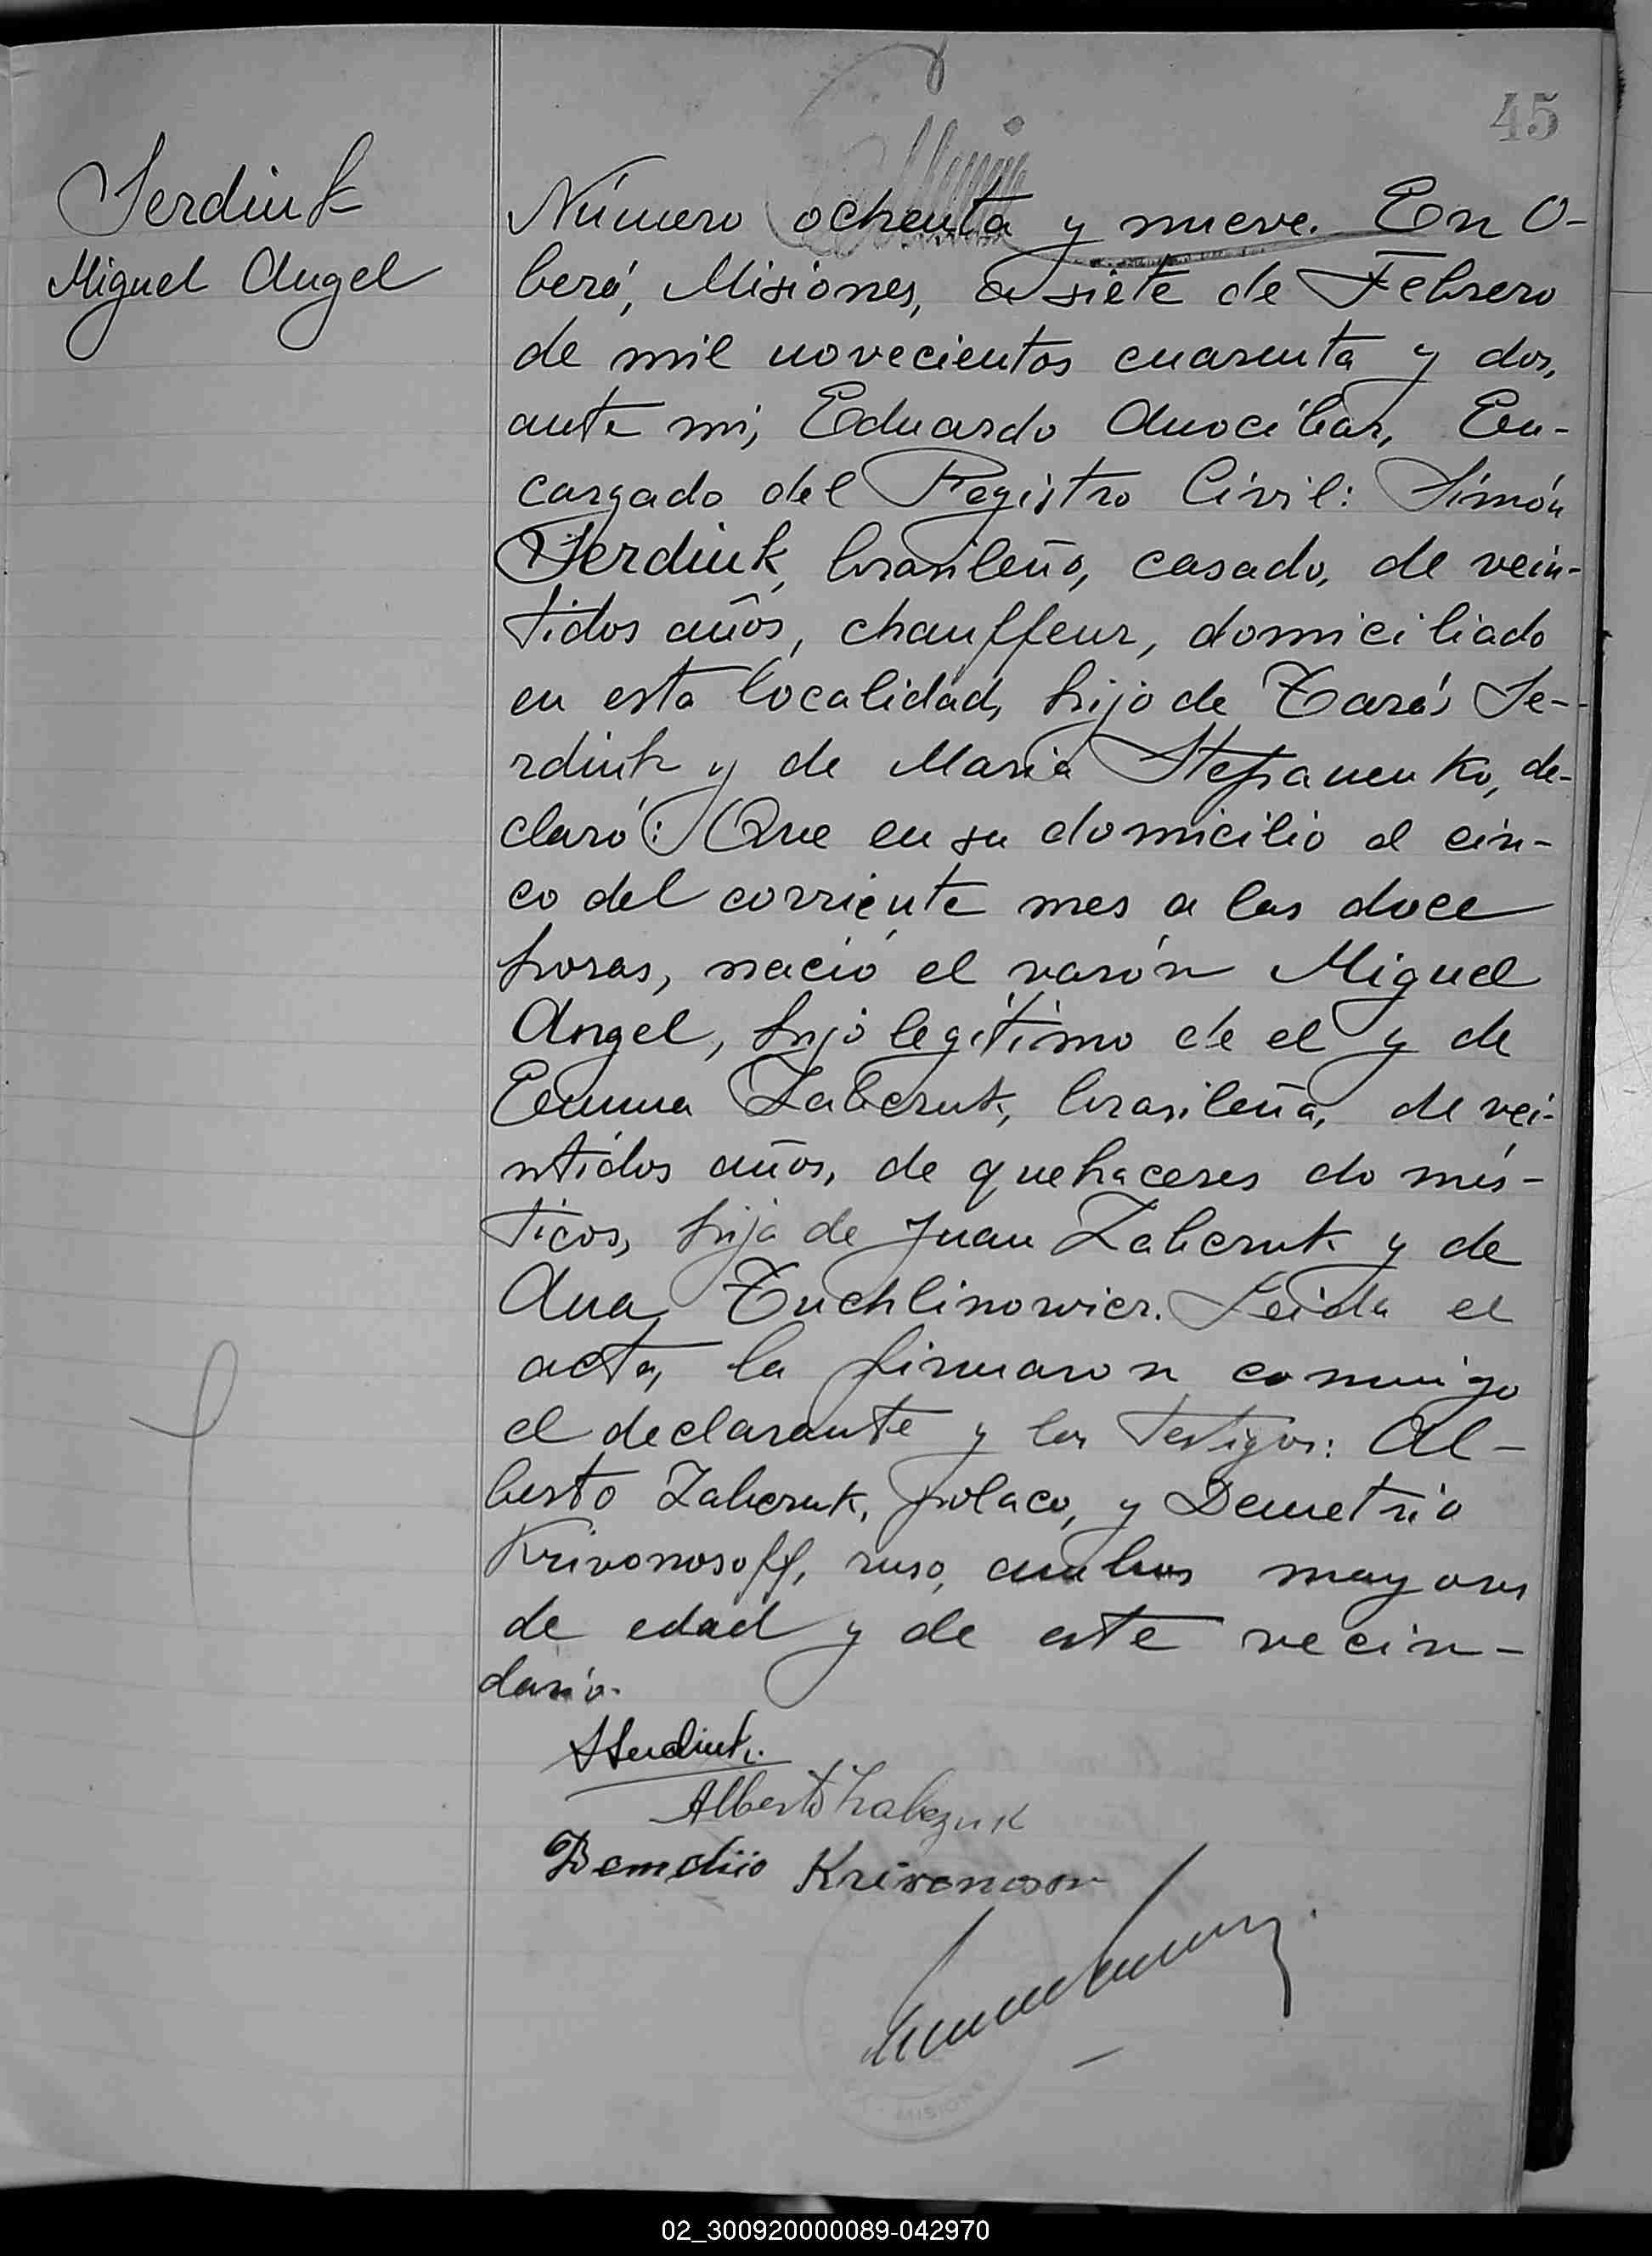 45
Serdiuk
Miguel Angel
Número ochenta y nueve. En O-
berá, Misiones, a siete de Febrero
de mil novecientos cuarenta y dos,
ante mi, Eduardo Anocíbar, En-
cargado del Registro Civil: Simón
Serdiuk, brasileño, casado, de vein-
tidos años, chauffeur, domiciliado
en esta localidad, hijo de Tarás Se-
rdiuk y de Maria Stepanenko, de-
claró: Que en su domicilio el cin-
co del corriente mes a las doce
horas, nació el varón Miguel
Angel, hijo legítimo de el y de
Emma Zabczuk, brasileña, de vei-
ntidos años, de quehaceres domés-
ticos, hija de Juan Zabczuk y de
Ana Tuchlinowicz. Leida el
acta, la firmaron conmigo
el declarante y los testigos: Al-
berto Zabczuk, polaco, y Demetrio
Krivonosoff, ruso, ambos mayores
de edad y de este vecin-
dario.
SSerdiuk.
Alberto Zabczuk
Demetrio Krivonosov
MISIONES
02_300920000089-042970